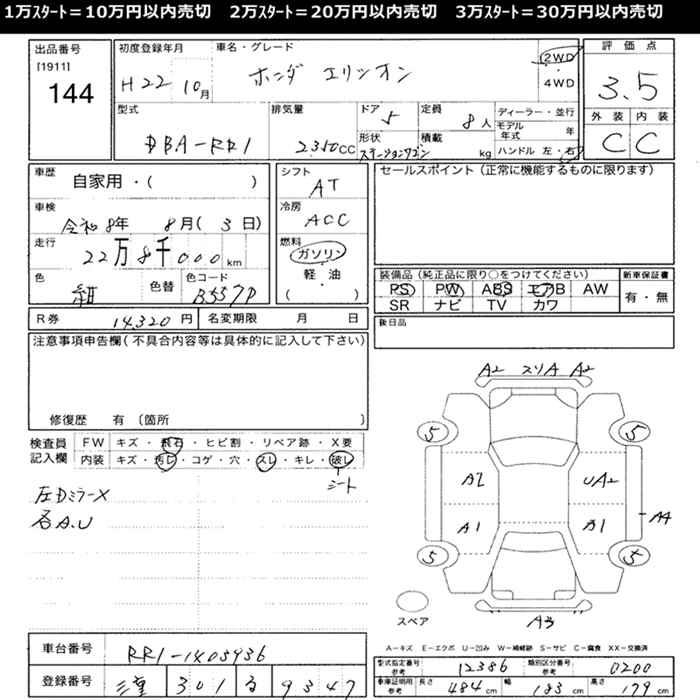 1万ｽﾀｰﾄ＝10万円以内売切　2万ｽﾀｰﾄ＝20万円以内売切　3万ｽﾀｰﾄ＝30万円以内売切
出品番号
[1911]
144
初度登録年月
H22 10月
車名・グレード
ホンダ エリシオン
2WD
4WD
評価点
3.5
外装 内装
C C
型式
DBA-RR1
排気量
2350CC
ドア 5
形状
ステーションワゴン
定員 8人
積載 kg
ディーラー・並行
モデル年式 年
ハンドル 左・右
車歴
自家用・( )
車検
令和8年 8月( 3日)
走行
22万8千000km
色
紺
色替
色コード
B557P
シフト
AT
冷房
ACC
燃料
ガソリン
軽・油
( )
セールスポイント (正常に機能するものに限ります)
装備品 (純正品に限り○をつけてください)
PS PW ABS エアB AW
SR ナビ TV カワ
新車保証書
有・無
後日品
R券 14,320円
名変期限 月 日
注意事項申告欄(不具合内容等は具体的に記入して下さい)
修復歴 有 (箇所 )
検査員記入欄
FW キズ・飛石・ヒビ割・リペア跡・X要
内装 キズ・汚レ・コゲ・穴・スレ・キレ・破レ
シート
左Dミラーx
各A.U
A2 スリA A2
5 5
A2 UA2
A1 A1
A4
5 5
スペア
A3
A－キズ E－エクボ U－凹み W－補修跡 S－サビ C－腐食 XX－交換済
車台番号 RR1-1403936
登録番号 三重 301 る 9347
型式指定番号 参考 12386
類別区分番号 参考 0200
車庫証明用 参考 長さ 484cm 幅 183cm 高さ 179cm